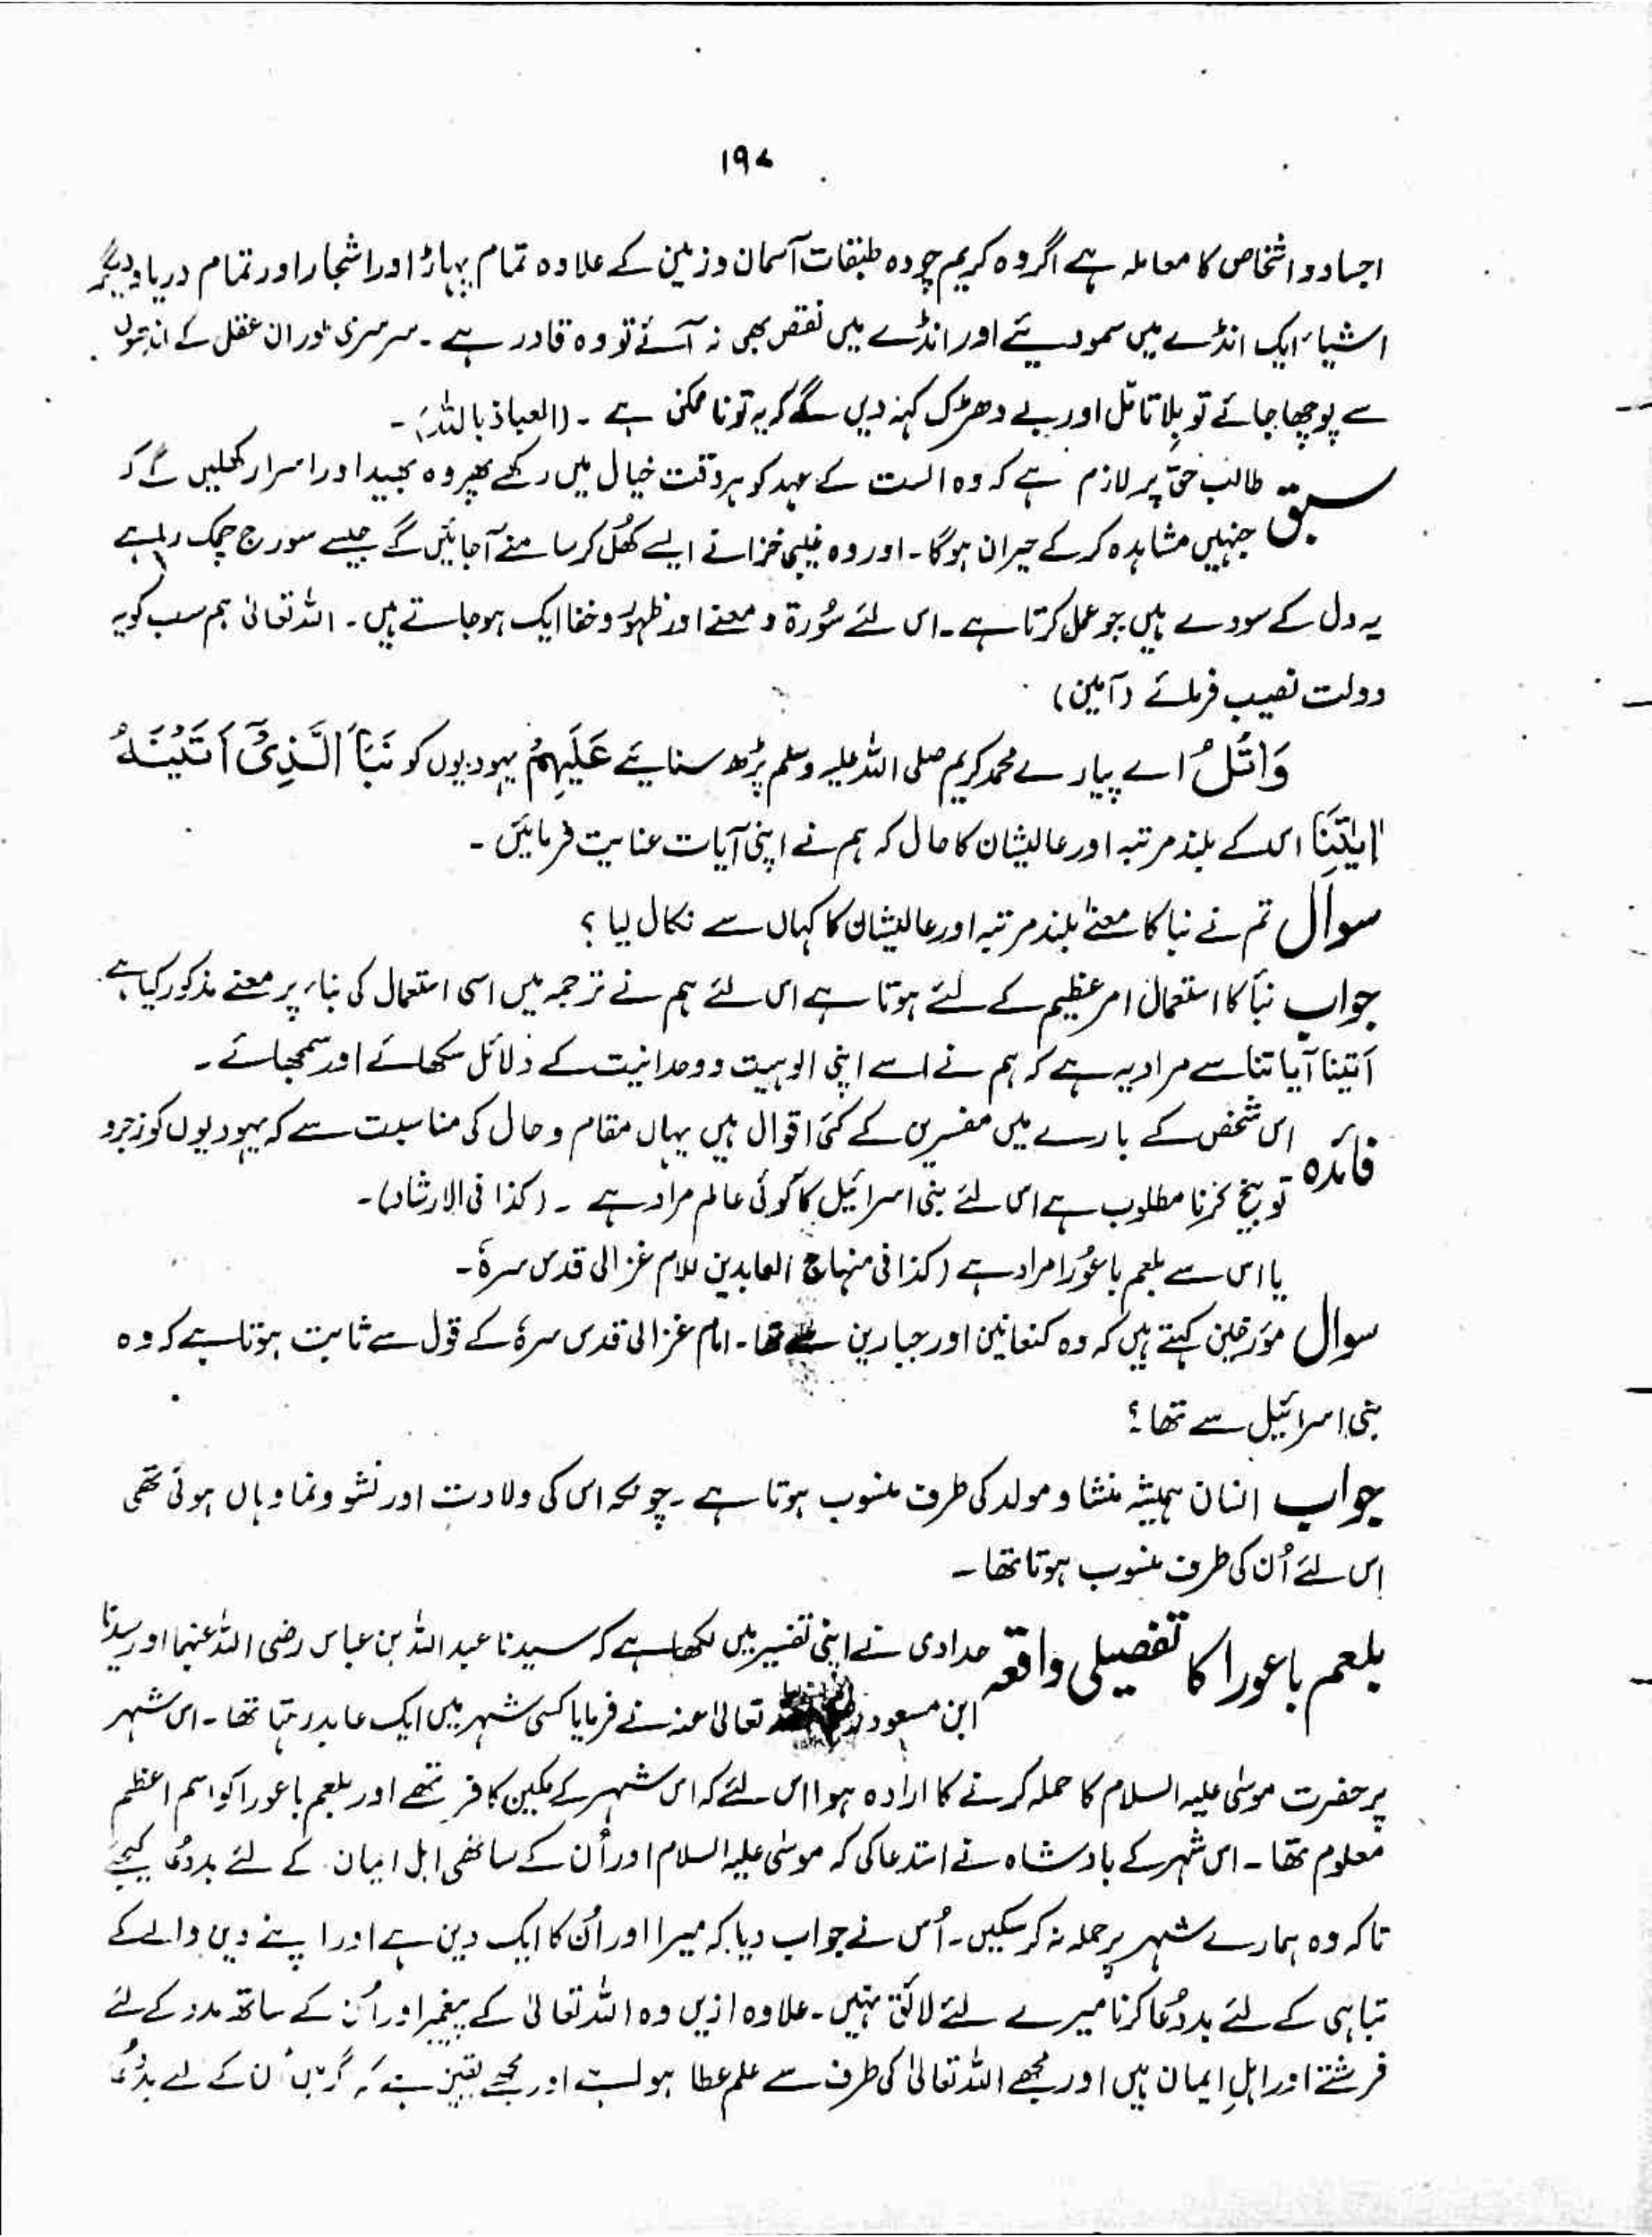 ۱۹۷
اجساد و اشخاص کا معاملہ ہے اگر وہ کریم چودہ طبقات آسمان و زمین کے علاوہ تمام پہاڑ اور اشجار اور تمام دریا و دیگر
اشیاء ایک انڈے میں سمو دیئے اور انڈے میں نقص بھی نہ آئے تو وہ قادر ہے ۔ سرسری طور ان عقل کے اندھوں
سے پوچھا جائے تو بِلا تامّل اور بے دھڑک کہہ دیں گے کہ یہ تو نا ممکن ہے ۔ (العیاذ باللہ) ۔
سبق طالب حق پر لازم ہے کہ وہ الست کے عہد کو ہر وقت خیال میں رکھے پھر وہ بھید اور اسرار کھلیں گے کہ
جنہیں مشاہدہ کر کے حیران ہوگا ۔ اور وہ غیبی خزانے ایسے کھُل کر سامنے آجائیں گے جیسے سورج چمک رہا ہے
یہ دل کے سودے ہیں جو عمل کرتا ہے ۔ اس لئے صُورۃ و معنے اور ظہور و خفا ایک ہوجاتے ہیں ۔ اللہ تعالیٰ ہم سب کو یہ
دولت نصیب فرمائے (آمین)
وَاتْلُ اے پیارے محمد کریم صلی اللہ علیہ وسلم پڑھ سنایئے عَلَیْہِمْ یہودیوں کو نَبَاَ الَّذِیْٓ اٰتَیْنٰہُ
اٰیٰتِنَا اس کے بلند مرتبہ اور عالیشان کا حال کہ ہم نے اپنی آیات عنایت فرمائیں ۔
سوال تم نے نبا کا معنےٰ بلند مرتبہ اور عالیشان کا کہاں سے نکال لیا ؟
جواب نبأ کا استعمال امر عظیم کے لئے ہوتا ہے اس لئے ہم نے ترجمہ میں اسی استعمال کی بناء پر معنے مذکور کیا ہے ۔
آتینا آیاتنا سے مراد یہ ہے کہ ہم نے اسے اپنی الوہیت و وحدانیت کے دلائل سکھائے اور سمجھائے ۔
فائدہ اس شخص کے بارے میں مفسرین کے کئی اقوال ہیں یہاں مقام و حال کی مناسبت سے کہ یہودیوں کو زجر و
توبیخ کرنا مطلوب ہے اس لئے بنی اسرائیل کا کوئی عالم مراد ہے ۔ (کذا فی الارشاد) ۔
یا اس سے بلعم باعُورا مراد ہے (کذا فی منہاج العابدین للامام غزالی قدس سرہٗ ۔
سوال مؤرخین کہتے ہیں کہ وہ کنعانین اور جبارین سے تھا ۔ امام غزالی قدس سرہٗ کے قول سے ثابت ہوتا ہے کہ وہ
بنی اسرائیل سے تھا ؟
جواب انسان ہمیشہ منشا و مولد کی طرف منسوب ہوتا ہے ۔ چونکہ اس کی ولادت اور نشو ونما وہاں ہوئی تھی
اس لئے اُن کی طرف منسوب ہوتا تھا ۔
بلعم باعورا کا تفصیلی واقعہ حدادی نے اپنی تفسیر میں لکھا ہے کہ سیدنا عبد اللہ بن عباس رضی اللہ عنہما اور سیدنا
ابن مسعود تعالیٰ عنہ نے فرمایا کسی شہر میں ایک عابد رہتا تھا ۔ اس شہر
پر حضرت موسیٰ علیہ السلام کا حملہ کرنے کا ارادہ ہوا اس لئے کہ اس شہر کے مکین کافر تھے اور بلعم باعورا کو اسم اعظم
معلوم تھا ۔ اس شہر کے بادشاہ نے استدعا کی کہ موسیٰ علیہ السلام اور اُن کے ساتھی اہل ایمان کے لئے بددُعا کیجئے
تاکہ وہ ہمارے شہر پر حملہ نہ کر سکیں ۔ اُس نے جواب دیا کہ میرا اور اُن کا ایک دین ہے اور اپنے دین والے کے
تباہی کے لئے بددُعا کرنا میرے لئے لائق نہیں ۔ علاوہ ازیں وہ اللہ تعالیٰ کے پیغمبر اور اُن کے ساتھ مدد کے لئے
فرشتے اور اہلِ ایمان ہیں اور مجھے اللہ تعالیٰ کی طرف سے علم عطا ہوا ہے اور مجھے یقین ہے کہ اگر میں اُن کے لئے بددُعا